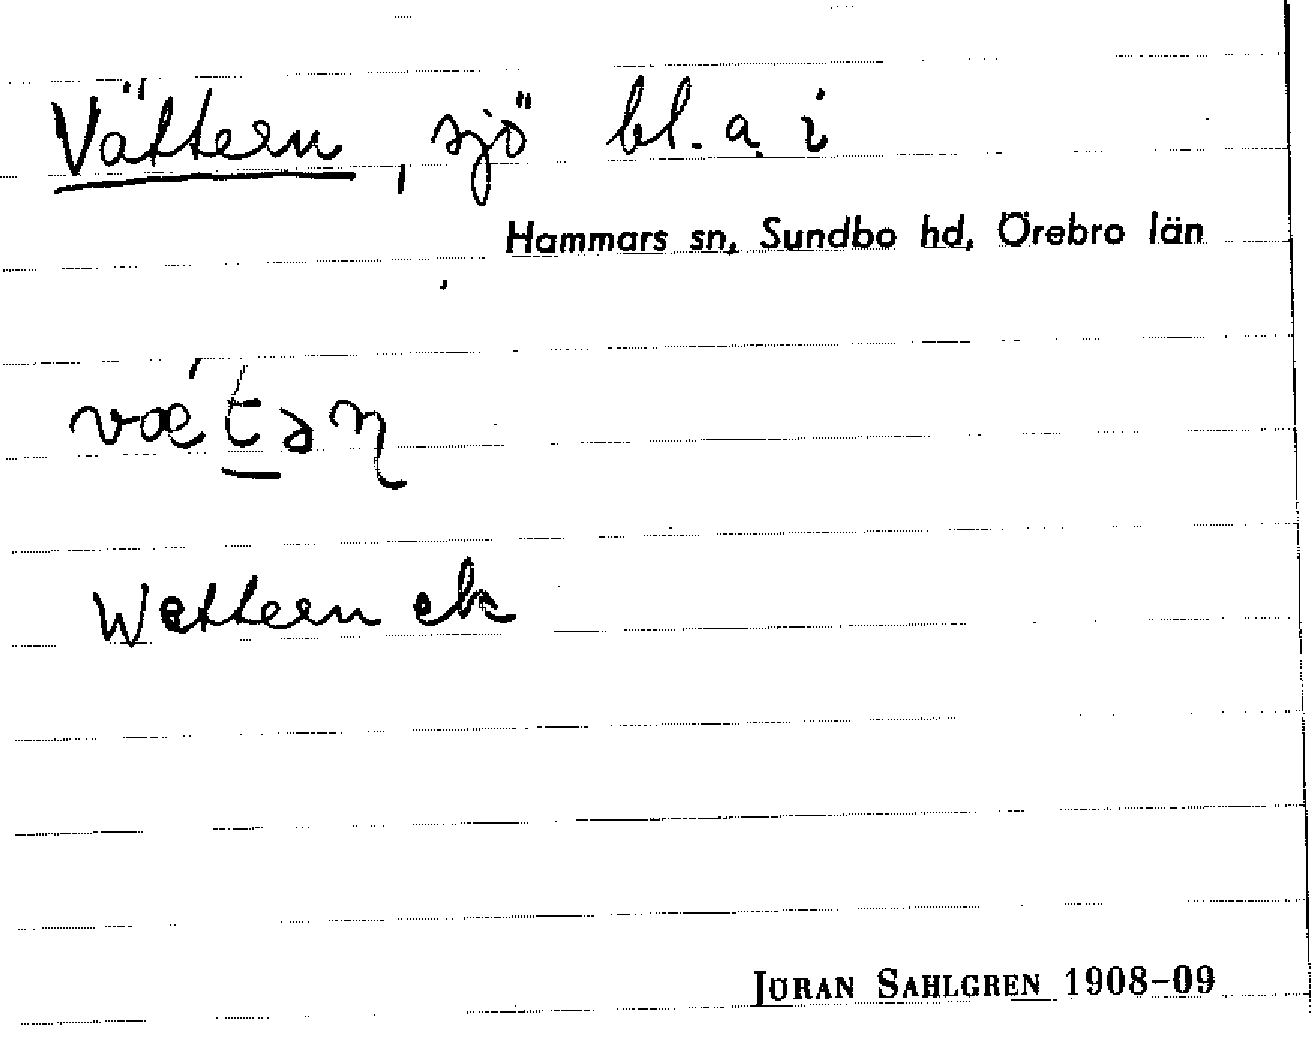 Vättern, sjö bl. a. i
Hammars sn, Sundbo hd, Örebro län
væ´t̲əɳ
Wettern ek
JÖRAN SAHLGREN 1908–09